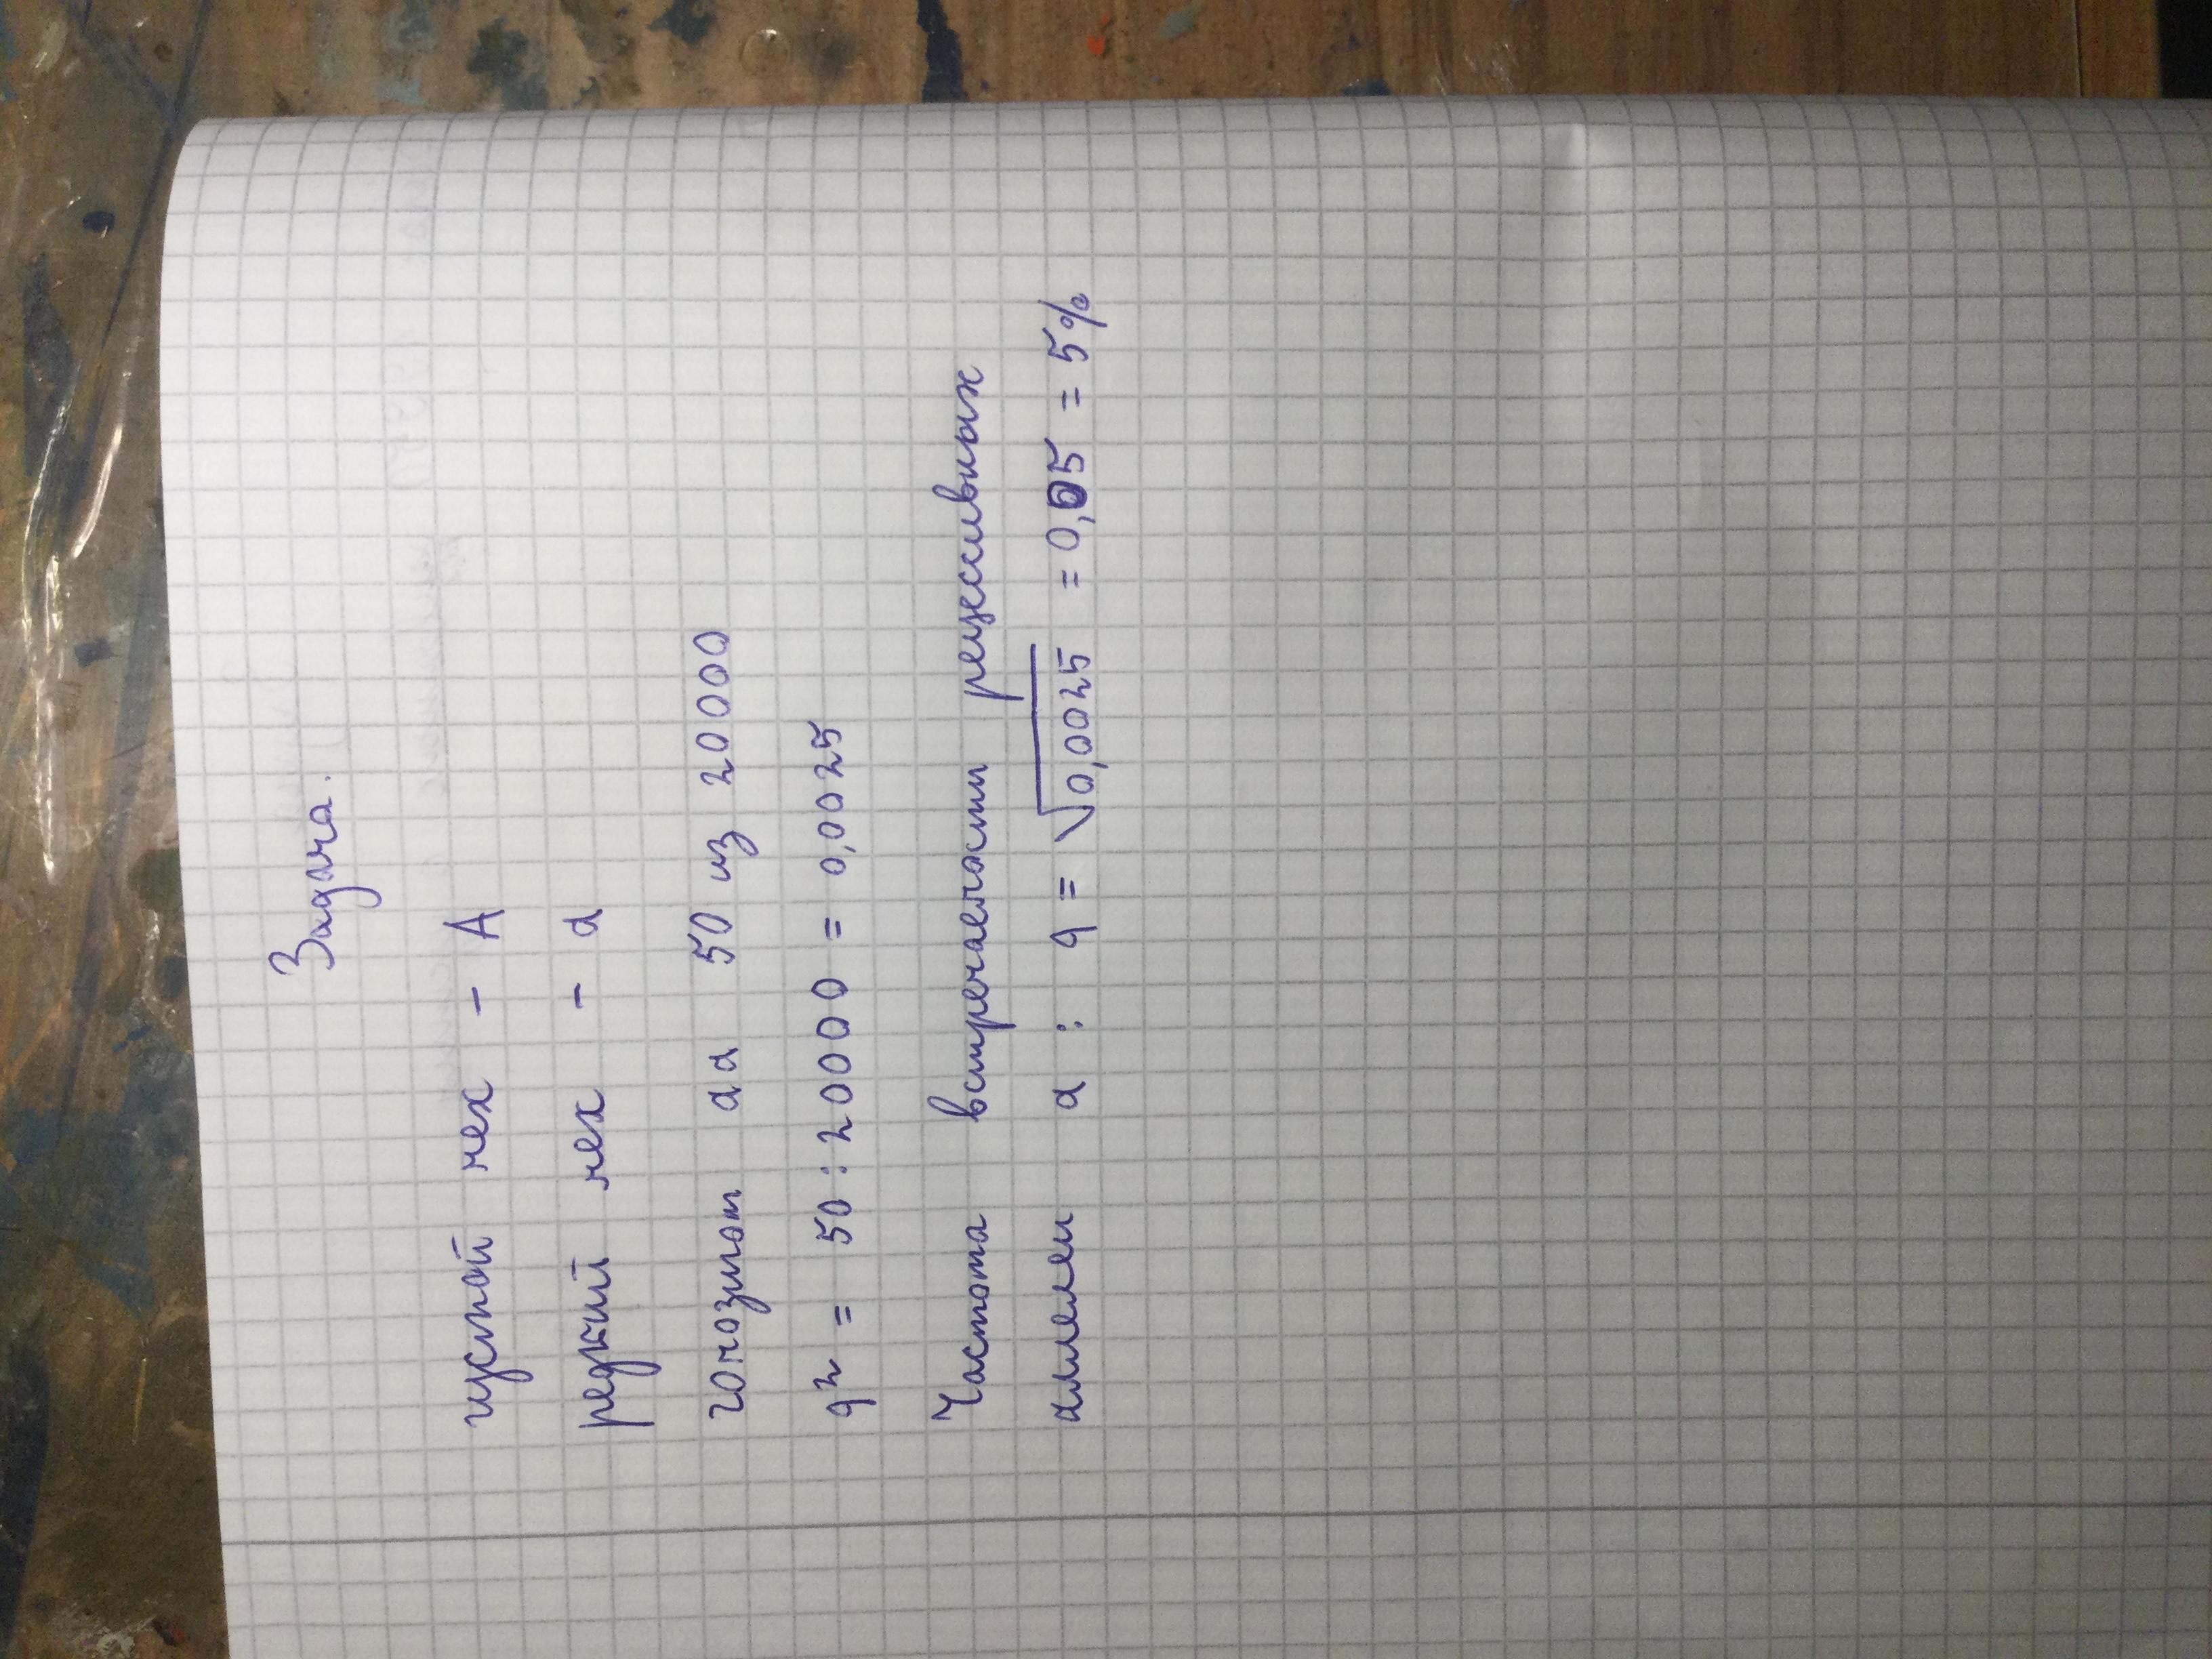 Задача.
густой мех - А
редкий мех - а
гомозигот аа 50 из 20000
q² = 50 : 20000 = 0,0025
Частота встречаемости рецессивных
аллелей а : q = √0,0025 = 0,05 = 5%